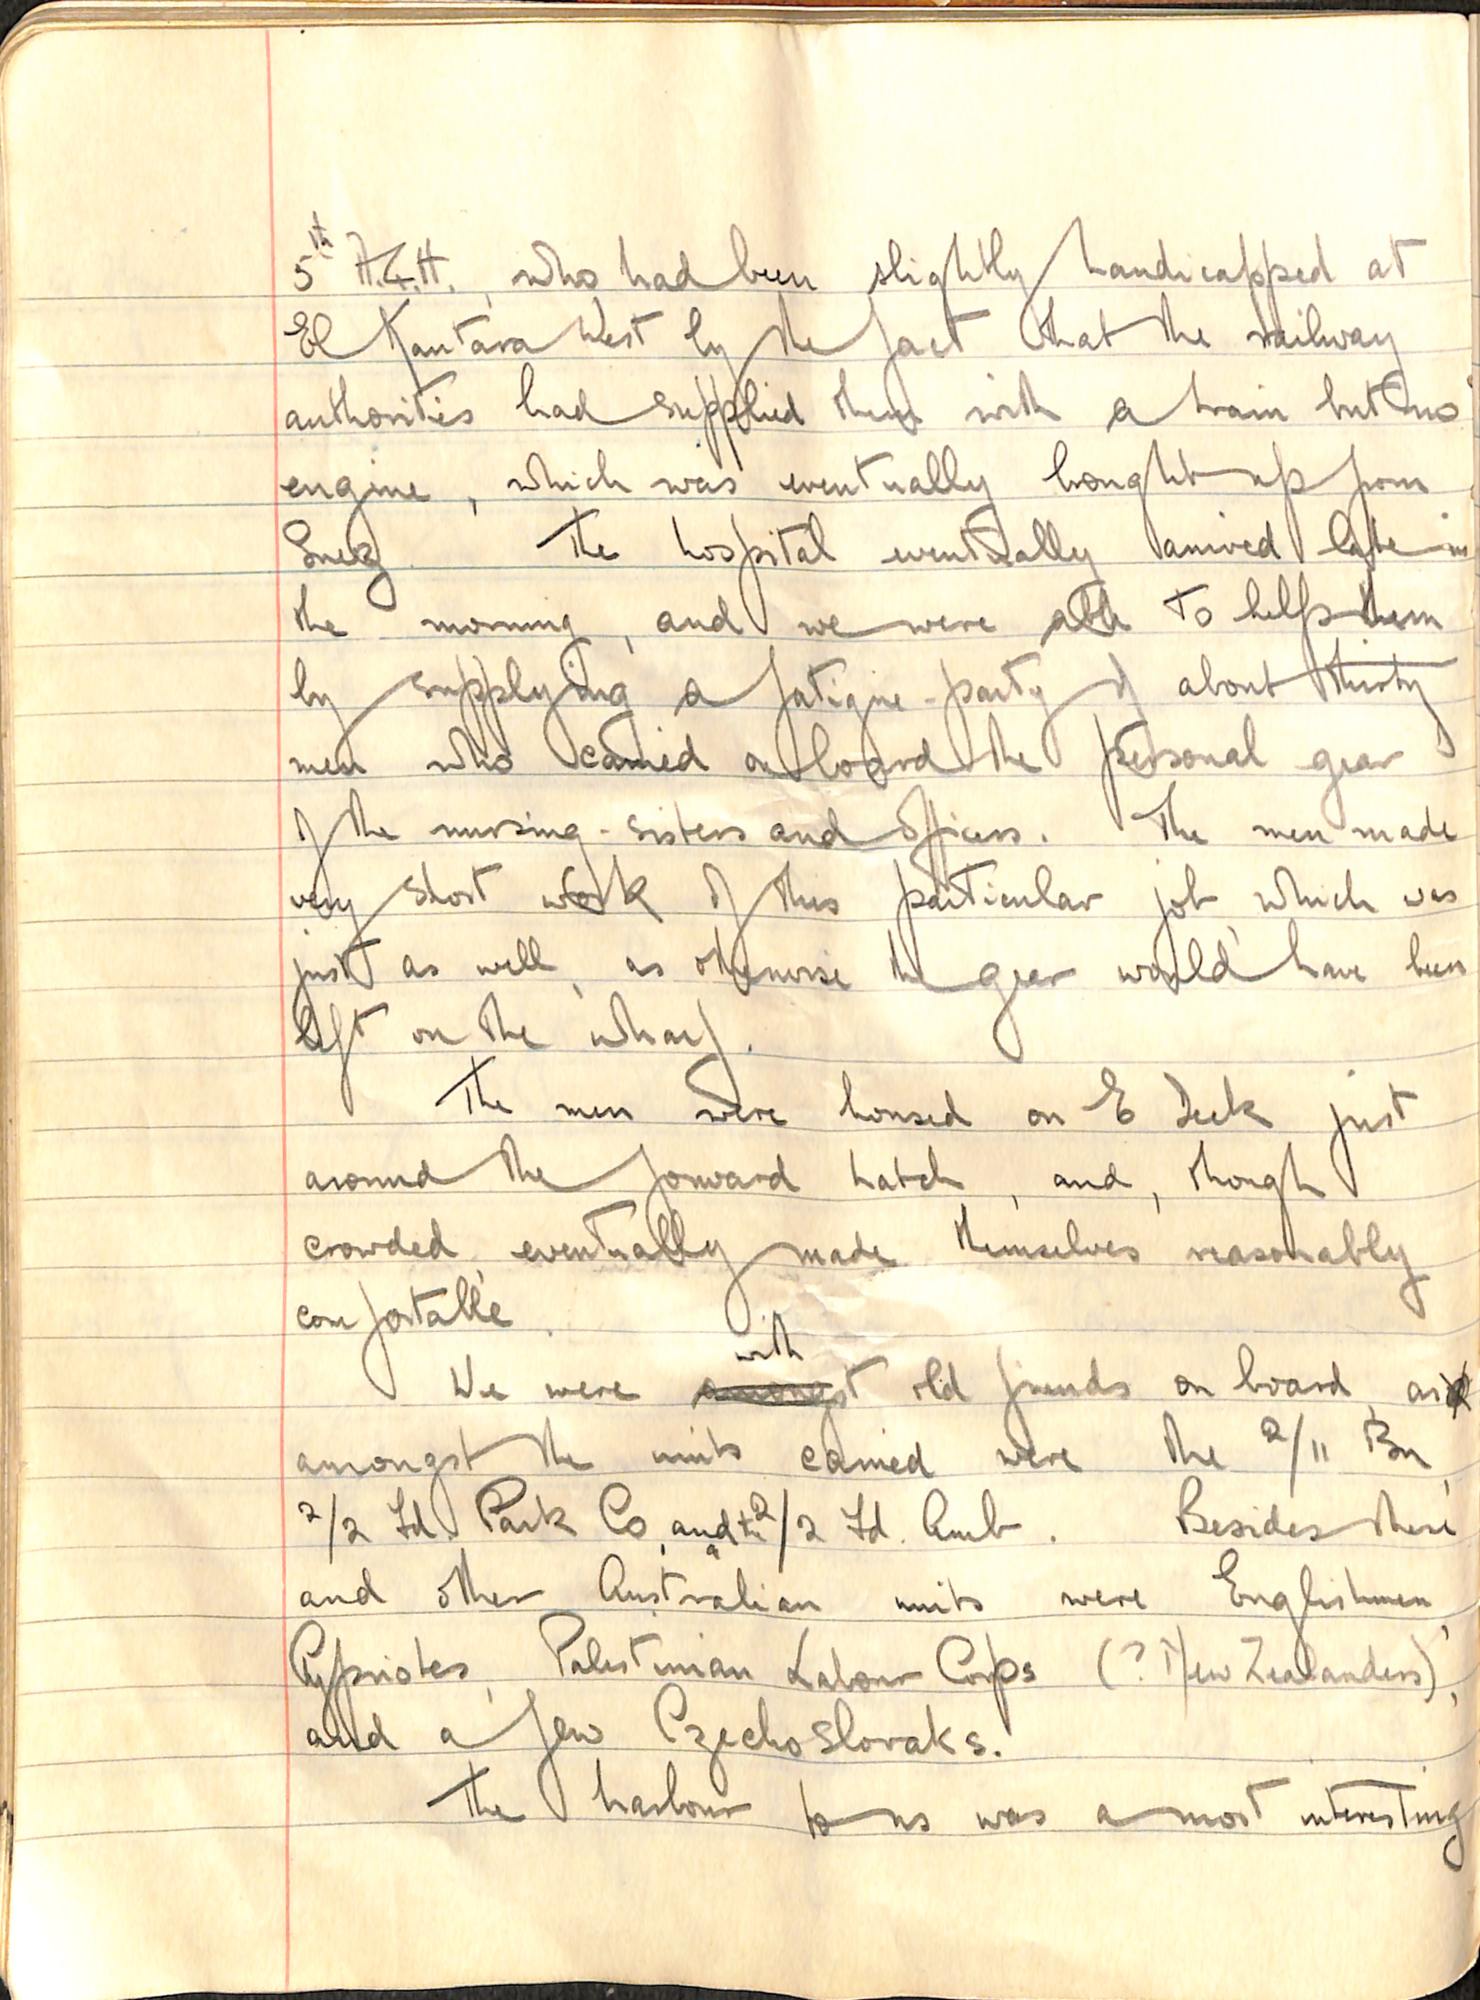 5th A.G.H., who had been slightly handicapped at
El Kantara West by the fact that the railway
authorities had supplied them with a train but no
engine, which was eventually brought up from
Suez. The hospital eventually arrived late in
the morning, and we were able to help them
by supplying a fatigue-party of about thirty
men who carried on board the personal gear
of the nursing-sisters and officers. The men made
very short work of this particular job, which was
just as well, as otherwise the gear would have been
left on the wharf.
The men were housed on E Deck just
around the forward hatch, and, though
crowded, eventually made themselves reasonably
comfortable.
with
We were amongst old friends on board, as
amongst the units carried were the 2/11 Bn,
2/2 Fd. Park Co, and the 2/2 Fd. Amb. Besides these
and other Australian units were Englishmen,
Cypriotes, Palestinian Labour Corps (? New Zealanders),
and a few Czechoslovaks.
The harbour to us was a most interesting